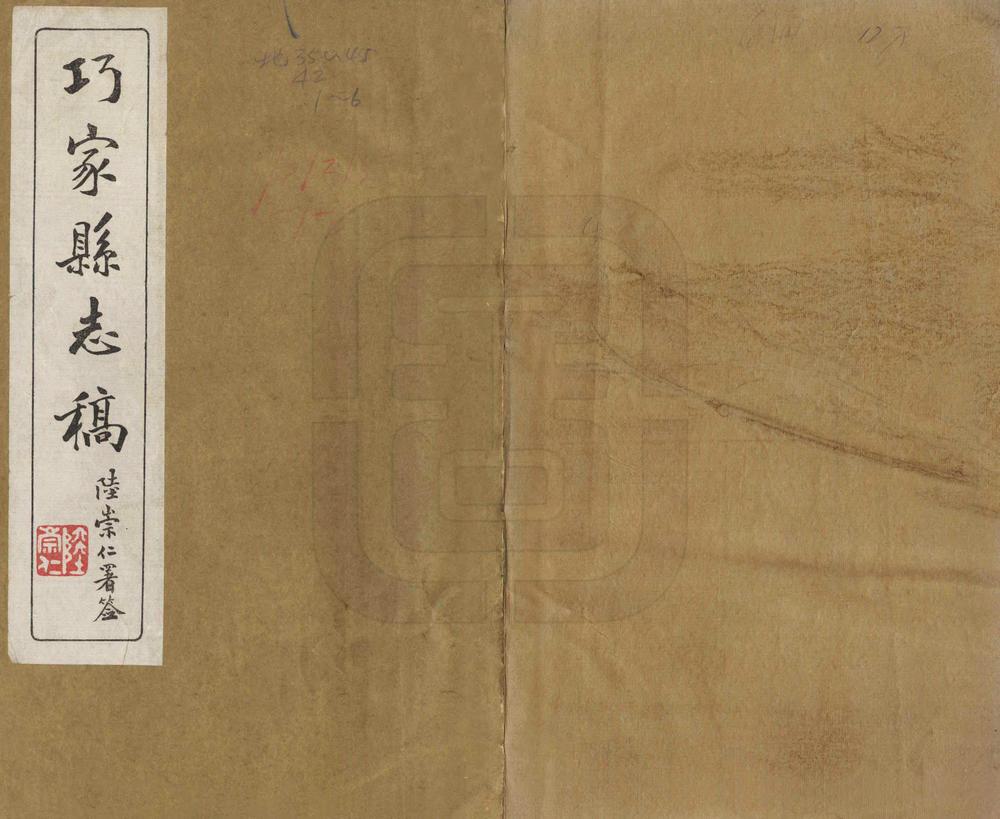 巧家縣志稿
陸崇仁署签
陸崇仁
地 350.45
42
1~6